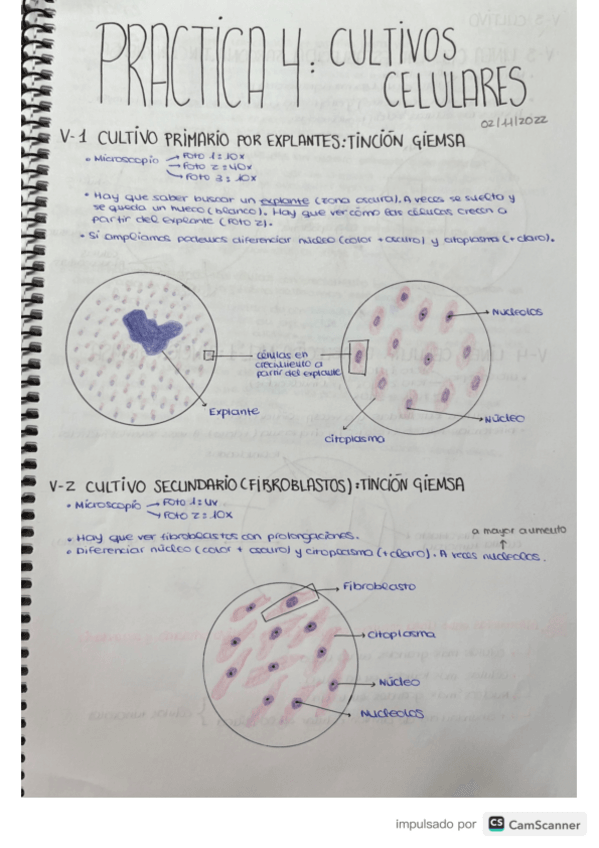 PRACTICA 4: CULTIVOS
CELULARES
02/11/2022
V-1 CULTIVO PRIMARIO POR EXPLANTES: TINCIÓN GIEMSA
• Microscopio → Foto 1 = 10x
→ Foto 2 = 40x
→ Foto 3 = 10x
• Hay que saber buscar un explante (zona oscura). A veces se suelta y
se queda un hueco (blanco). Hay que ver cómo las células crecen a
partir del explante (Foto 2).
• Si ampliamos podemos diferenciar núcleo (color + oscuro) y citoplasma (+ claro).
Nucleolos
células en
crecimiento a
partir del explante
Explante
Núcleo
citoplasma
V-2 CULTIVO SECUNDARIO (FIBROBLASTOS): TINCIÓN GIEMSA
• Microscopio → Foto 1 = 4x
→ Foto 2 = 10x
• Hay que ver fibroblastos con prolongaciones.
a mayor aumento
↑
• Diferenciar núcleo (color + oscuro) y citoplasma (+ claro). A veces nucleolos.
Fibroblasto
citoplasma
Núcleo
Nucleolos
impulsado por CS CamScanner